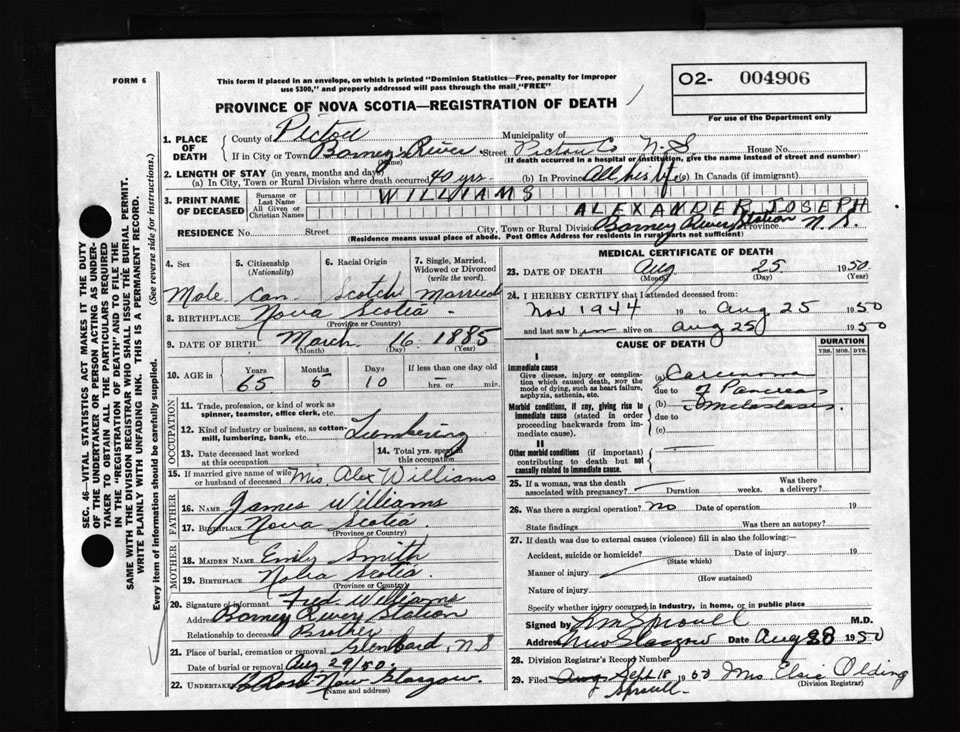 FORM 6
This form if placed in an envelope, on which is printed "Dominion Statistics—Free, penalty for improper
use $300," and properly addressed will pass through the mail "FREE"
O2- 004906
For use of the Department only
PROVINCE OF NOVA SCOTIA—REGISTRATION OF DEATH
1. PLACE OF DEATH
County of Pictou Municipality of
If in City or Town Barney's River Street Pictou Co N.S. House No.
(Name) (If death occurred in a hospital or institution, give the name instead of street and number)
2. LENGTH OF STAY (in years, months and days)
(a) In City, Town or Rural Division where death occurred 40 yrs. (b) In Province All his life (c) In Canada (if immigrant)
3. PRINT NAME OF DECEASED
Surname or Last Name WILLIAMS
All Given or Christian Names ALEXANDER JOSEPH
RESIDENCE No. Street City, Town or Rural Division Barney River Station Province N.S.
(Residence means usual place of abode. Post Office Address for residents in rural parts not sufficient)
4. Sex
5. Citizenship (Nationality)
6. Racial Origin
7. Single, Married, Widowed or Divorced (write the word)
Male Can. Scotch Married
8. BIRTHPLACE Nova Scotia
(Province or Country)
9. DATE OF BIRTH March 16 1885
(Month) (Day) (Year)
10. AGE in Years Months Days If less than one day
65 5 10 hrs. or min.
OCCUPATION
11. Trade, profession, or kind of work as spinner, teamster, office clerk, etc.
12. Kind of industry or business, as cotton-mill, lumbering, bank, etc. Lumbering
13. Date deceased last worked at this occupation
14. Total yrs. spent in this occupation
15. If married give name of wife or husband of deceased Mrs. Alex Williams
FATHER
16. NAME James Williams
17. BIRTHPLACE Nova Scotia
(Province or Country)
MOTHER
18. MAIDEN NAME Emily Smith
19. BIRTHPLACE Nova Scotia
(Province or Country)
20. Signature of informant Fred Williams
Address Barney River Station
Relationship to deceased Brother
21. Place of burial, cremation or removal Glenbard, N.S
Date of burial or removal Aug 29/50.
22. Undertaker Ross New Glasgow.
(Name and address)
MEDICAL CERTIFICATE OF DEATH
23. DATE OF DEATH Aug 25 1950
(Month) (Day) (Year)
24. I HEREBY CERTIFY that I attended deceased from:
Nov 1944 to Aug 25 1950
and last saw him alive on Aug 25 1950
CAUSE OF DEATH
DURATION
YRS. MOS. DYS.
I
Immediate cause
Give disease, injury or complication which caused death, NOT the mode of dying, such as heart failure, asphyxia, asthenia, etc.
(a) Carcinoma
due to of Pancreas
Morbid conditions, if any, giving rise to immediate cause (stated in order proceeding backwards from immediate cause).
(b) metastases.
due to
(c)
II
Other morbid conditions (if important) contributing to death but not causally related to immediate cause.
25. If a woman, was the death associated with pregnancy? Duration weeks. Was there a delivery?
26. Was there a surgical operation? no Date of operation 19
State findings Was there an autopsy?
27. If death was due to external causes (violence) fill in also the following:—
Accident, suicide or homicide? Date of injury 19
(State which)
Manner of injury
(How sustained)
Nature of injury
Specify whether injury occurred in industry, in home, or in public place
Signed by Sproull M.D.
Address New Glasgow Date Aug 28 1950
28. Division Registrar's Record Number
29. Filed Aug Sept 18 1950 Mrs Elsie Olding
Sproull
(Division Registrar)
SEC. 46—VITAL STATISTICS ACT MAKES IT THE DUTY
OF THE UNDERTAKER OR PERSON ACTING AS UNDER-
TAKER TO OBTAIN ALL THE PARTICULARS REQUIRED
IN THE "REGISTRATION OF DEATH" AND TO FILE THE
SAME WITH THE DIVISION REGISTRAR WHO SHALL ISSUE THE BURIAL PERMIT.
WRITE PLAINLY WITH UNFADING INK. THIS IS A PERMANENT RECORD.
Every item of information should be carefully supplied. (See reverse side for instructions.)